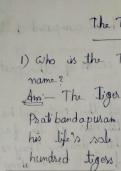 The, T
1) Who is the T
name?
Ans:- The Tiger
Pratibandapuram
his life's sole
hundred tigers